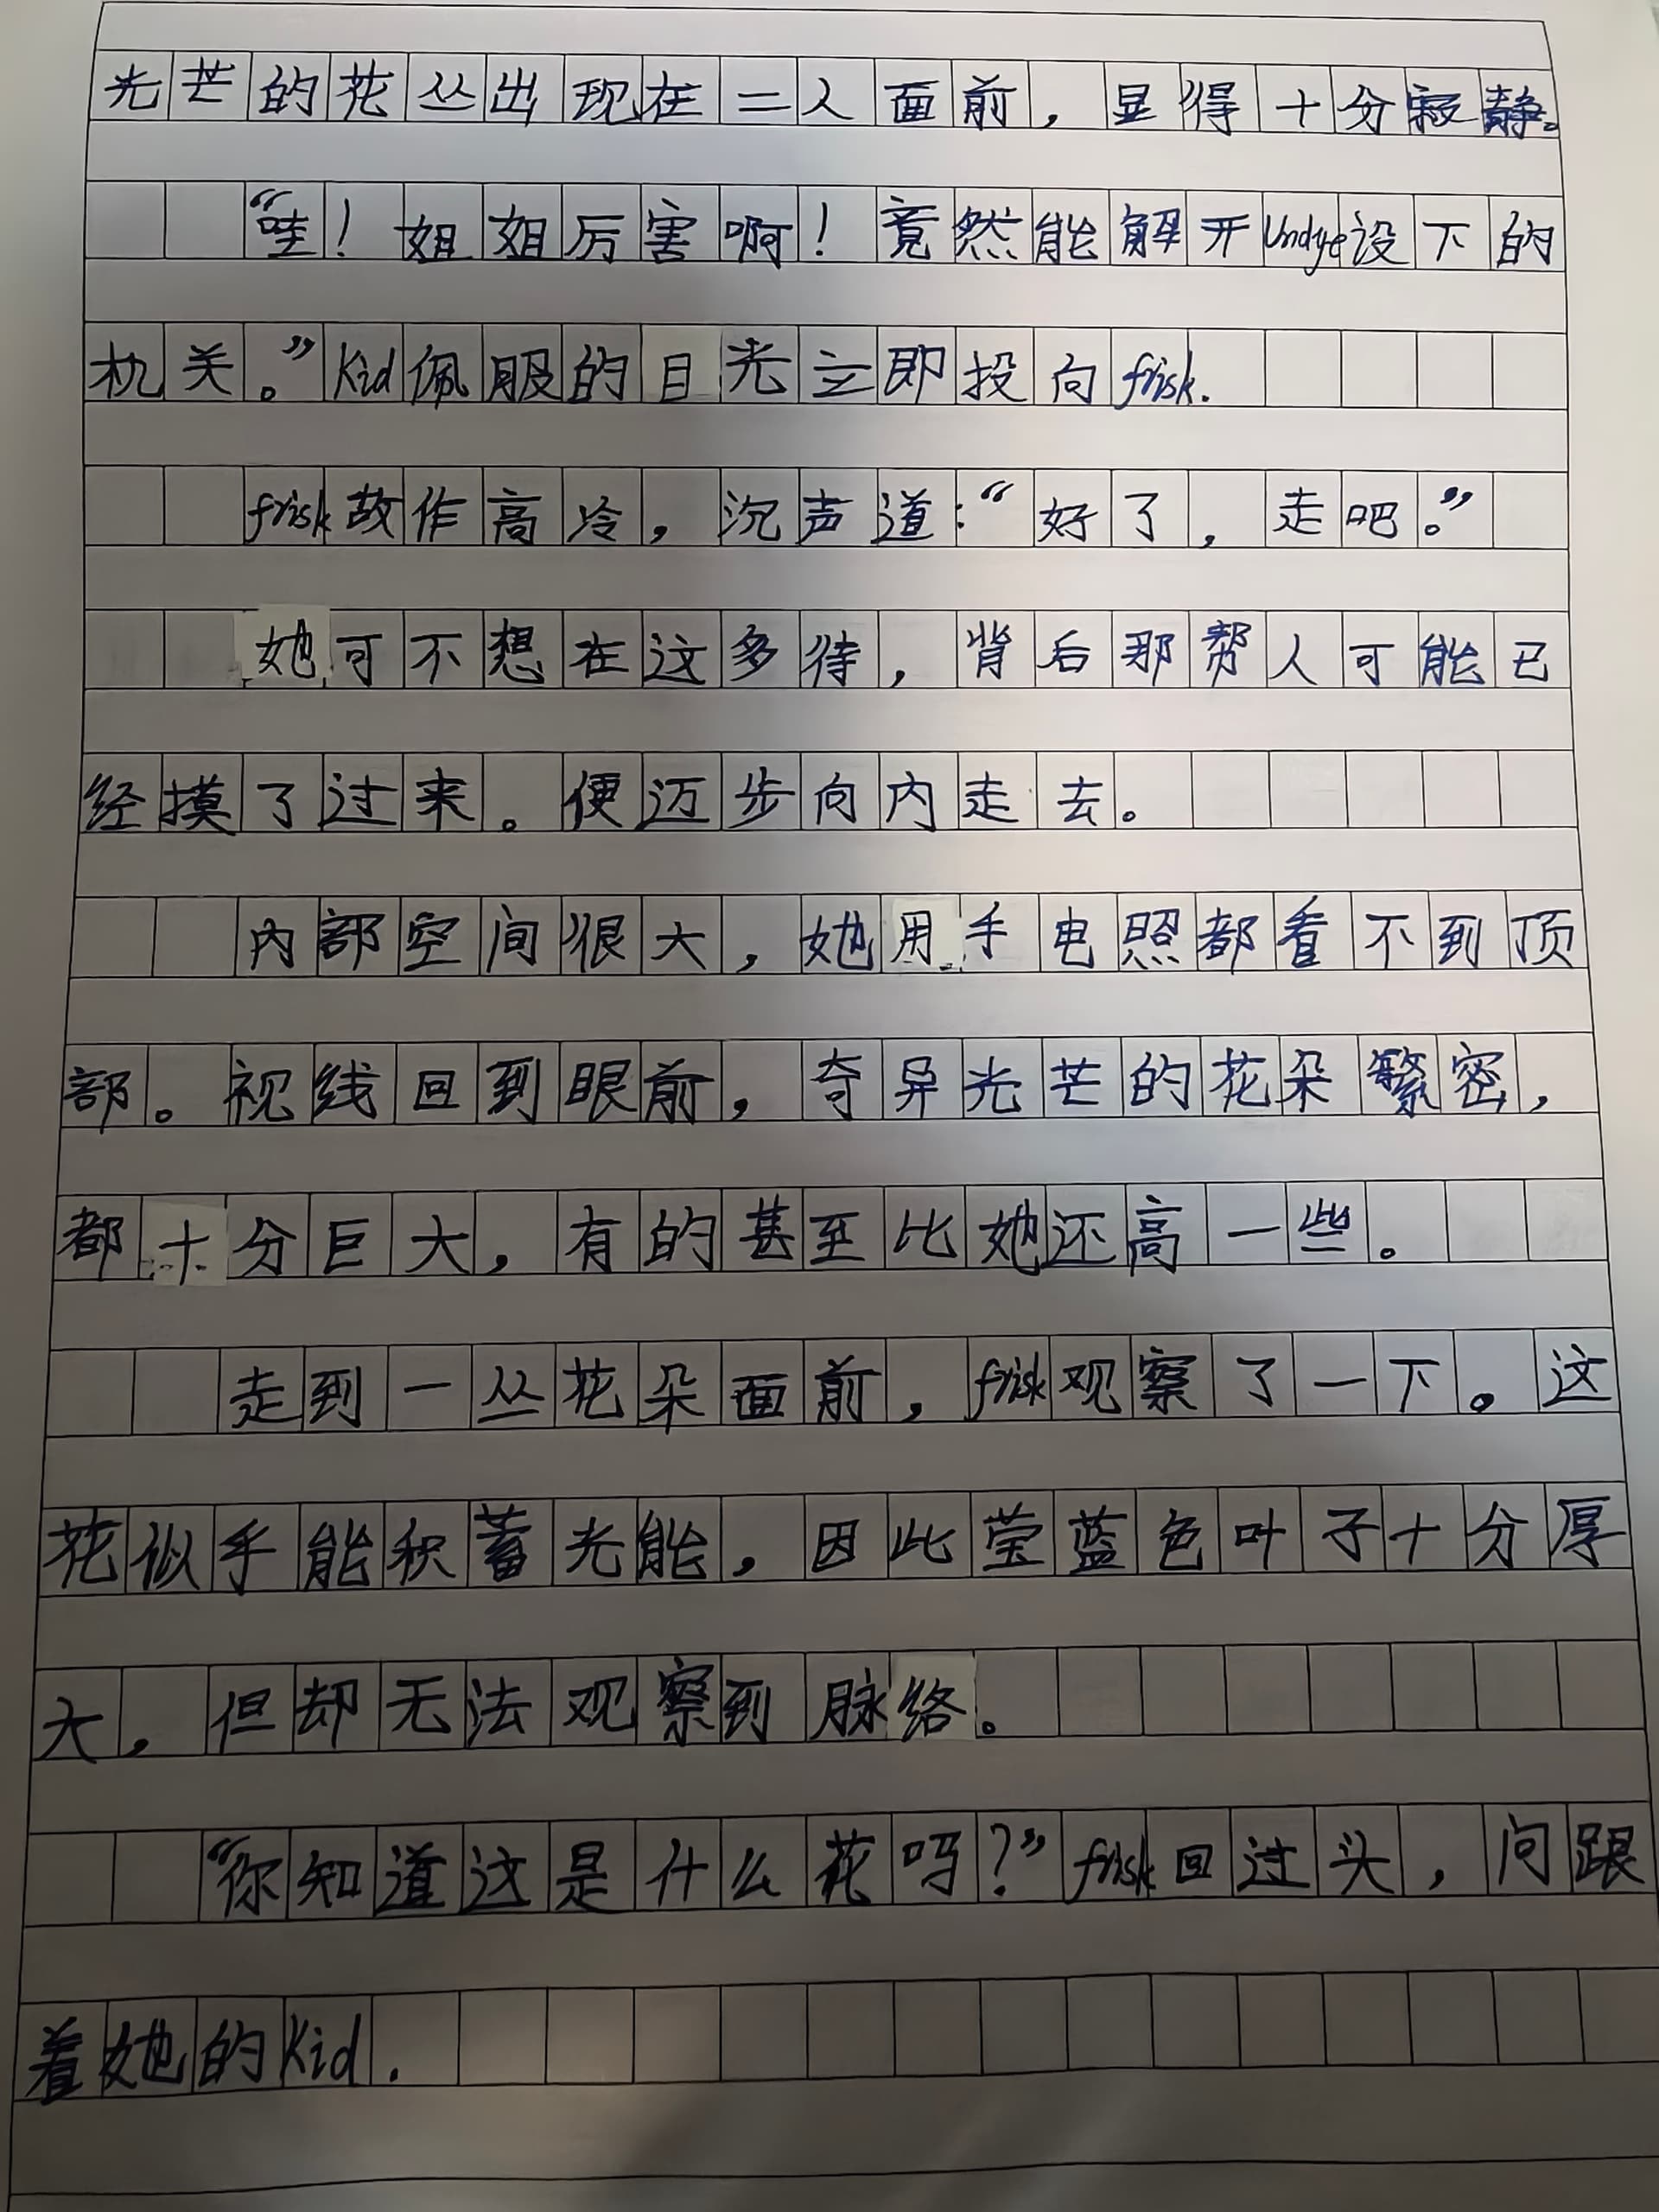 光芒的花丛出现在二人面前，显得十分寂静。
“哇！姐姐厉害啊！竟然能解开Undye设下的
机关。”Kid佩服的目光立即投向frisk.
frisk故作高冷，沉声道：“好了，走吧。”
她可不想在这多待，背后那帮人可能已
经摸了过来。便迈步向内走去。
内部空间很大，她用手电照都看不到顶
部。视线回到眼前，奇异光芒的花朵繁密，
都十分巨大，有的甚至比她还高一些。
走到一丛花朵面前，frisk观察了一下。这
花似乎能积蓄光能，因此莹蓝色叶子十分厚
大，但却无法观察到脉络。
“你知道这是什么花吗？”frisk回过头，问跟
着她的Kid.